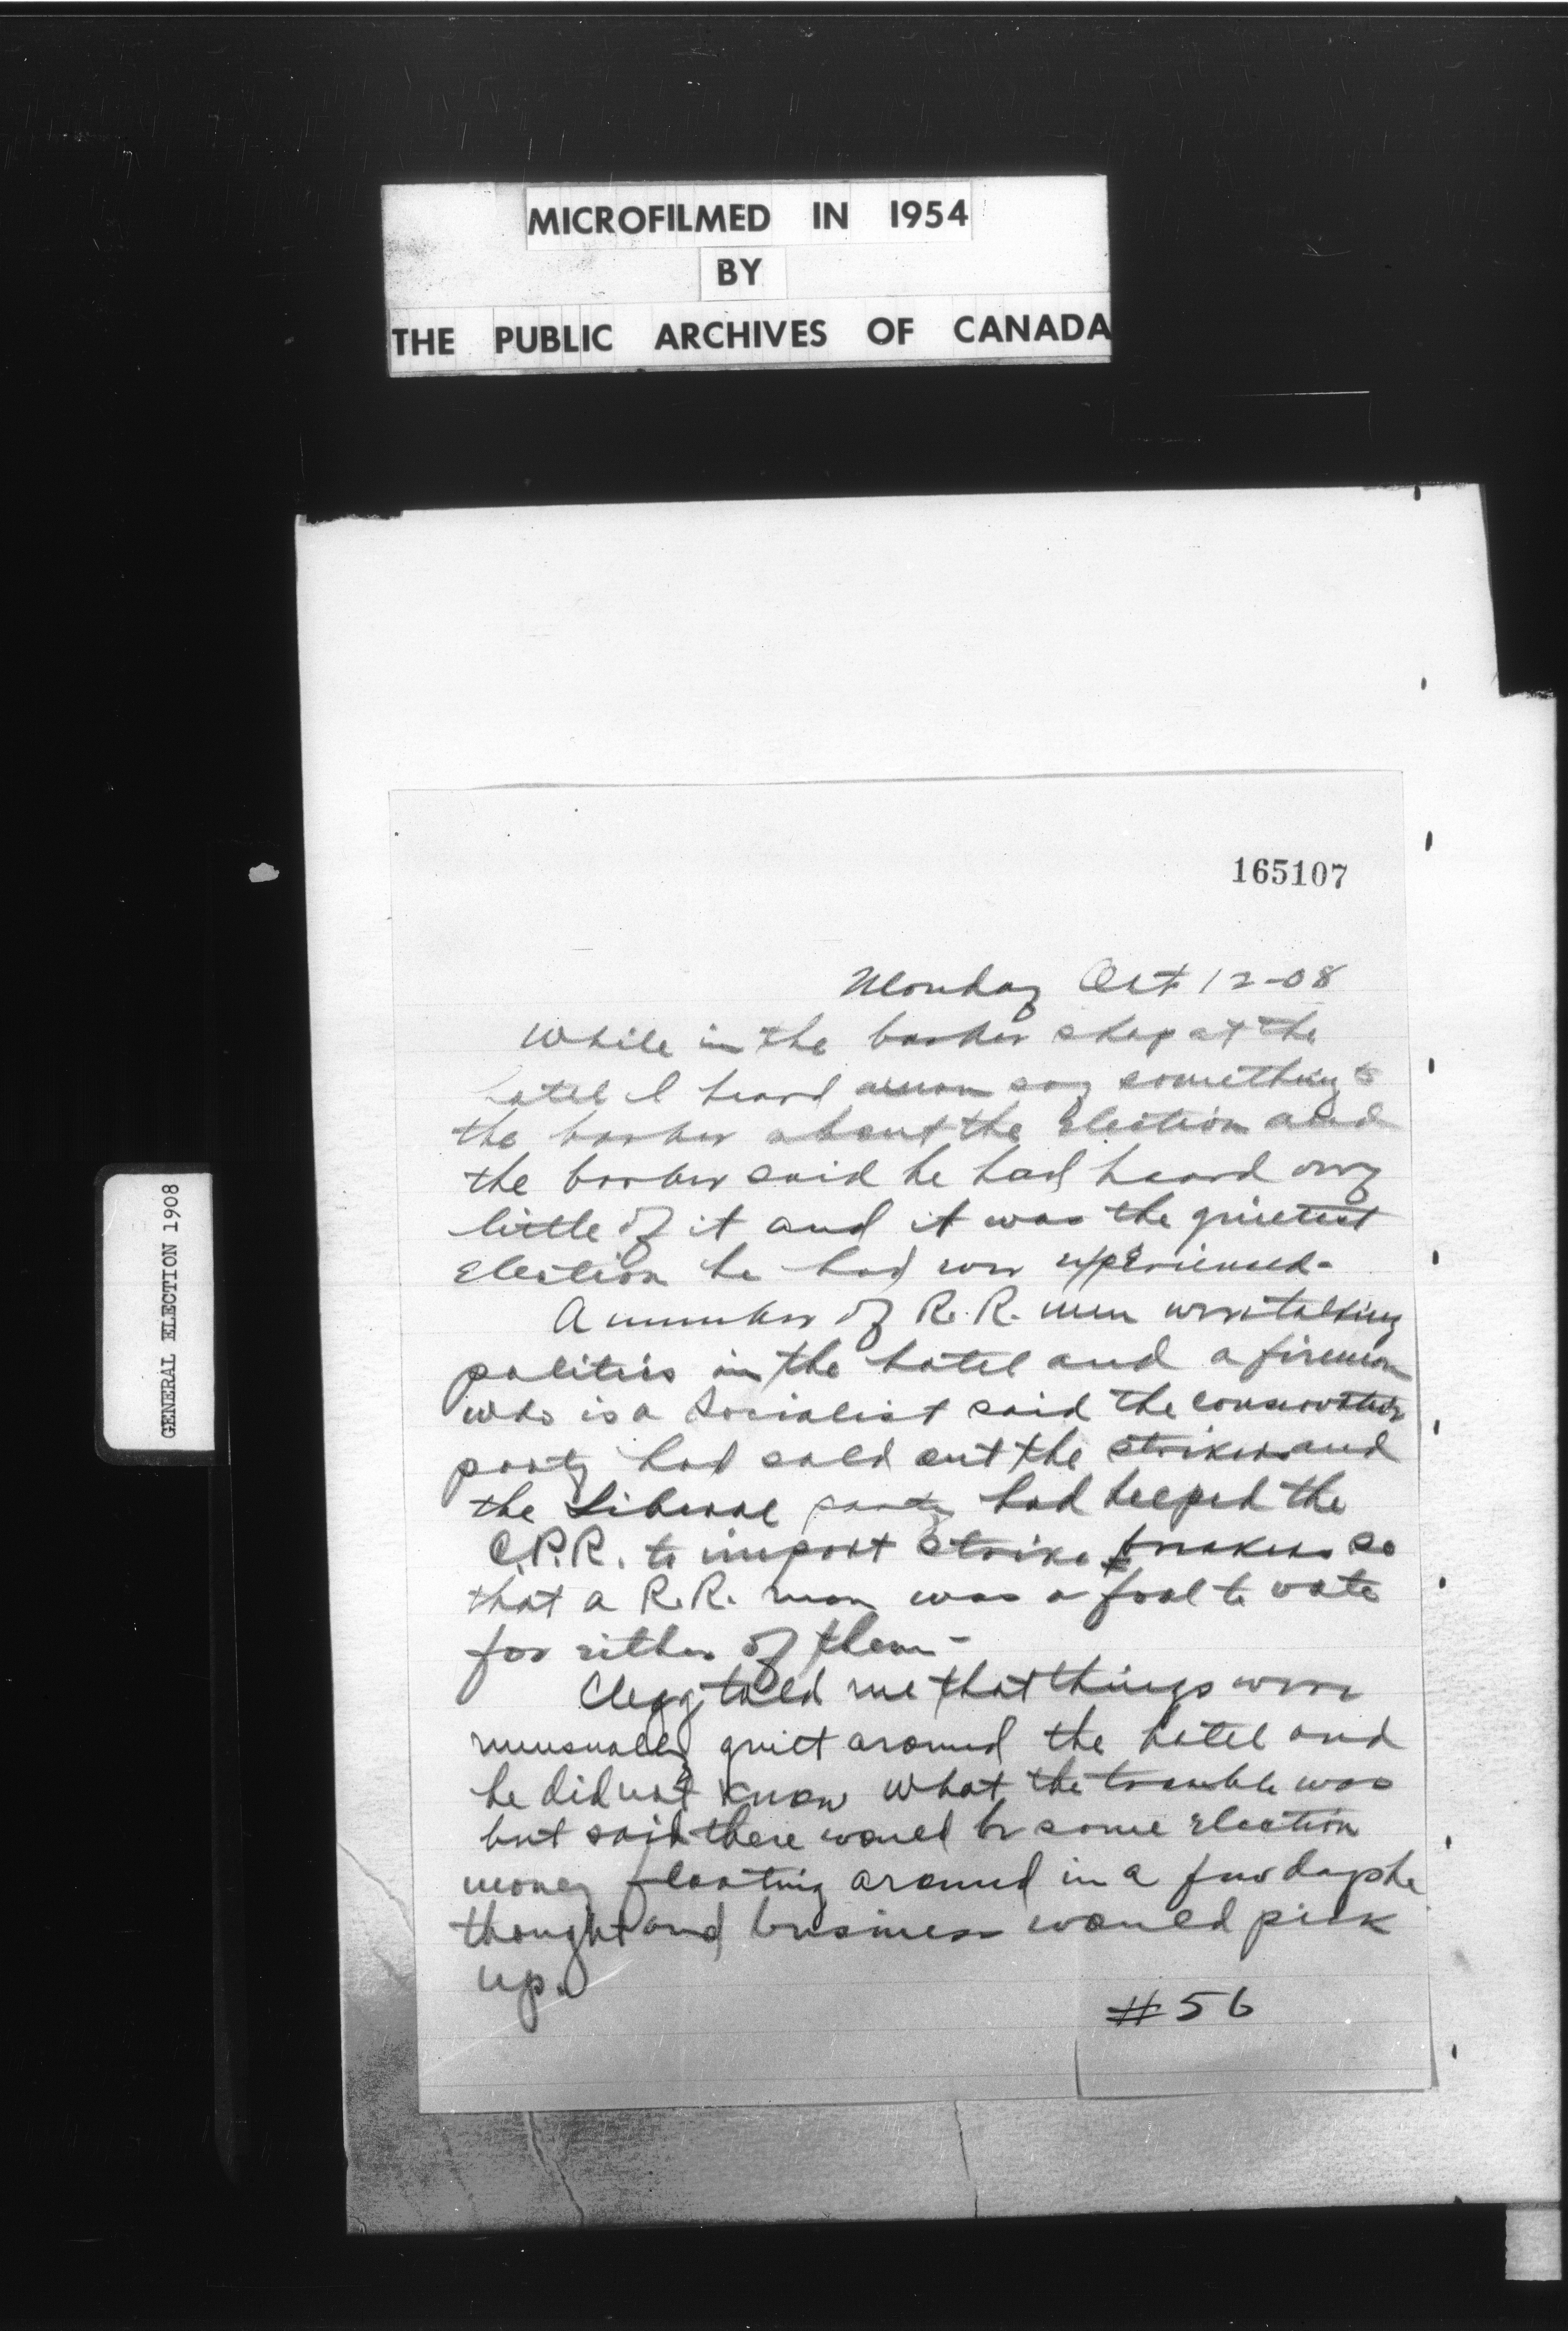 MICROFILMED IN 1954
BY
THE PUBLIC ARCHIVES OF CANADA
GENERAL ELECTION 1908
165107
Monday Oct 12-08
While in the barber shop at the
hotel I heard a man say something to
the barber about the Election and
the barber said he had heard very
little of it and it was the quietest
Election he had ever experienced-
A number of R.R. men were talking
politics in the hotel and a fireman
who is a Socialist said the conservative
party had sold out the strikers and
the Liberal party had helped the
C.P.R. to import Strike breakers so
that a R.R. man was a fool to vote
for either of them-
Clegg told me that things were
unusually quiet around the hotel and
he did not know what the trouble was
but said there would be some Election
money floating around in a few days he
thought and business would pick
up.
#56